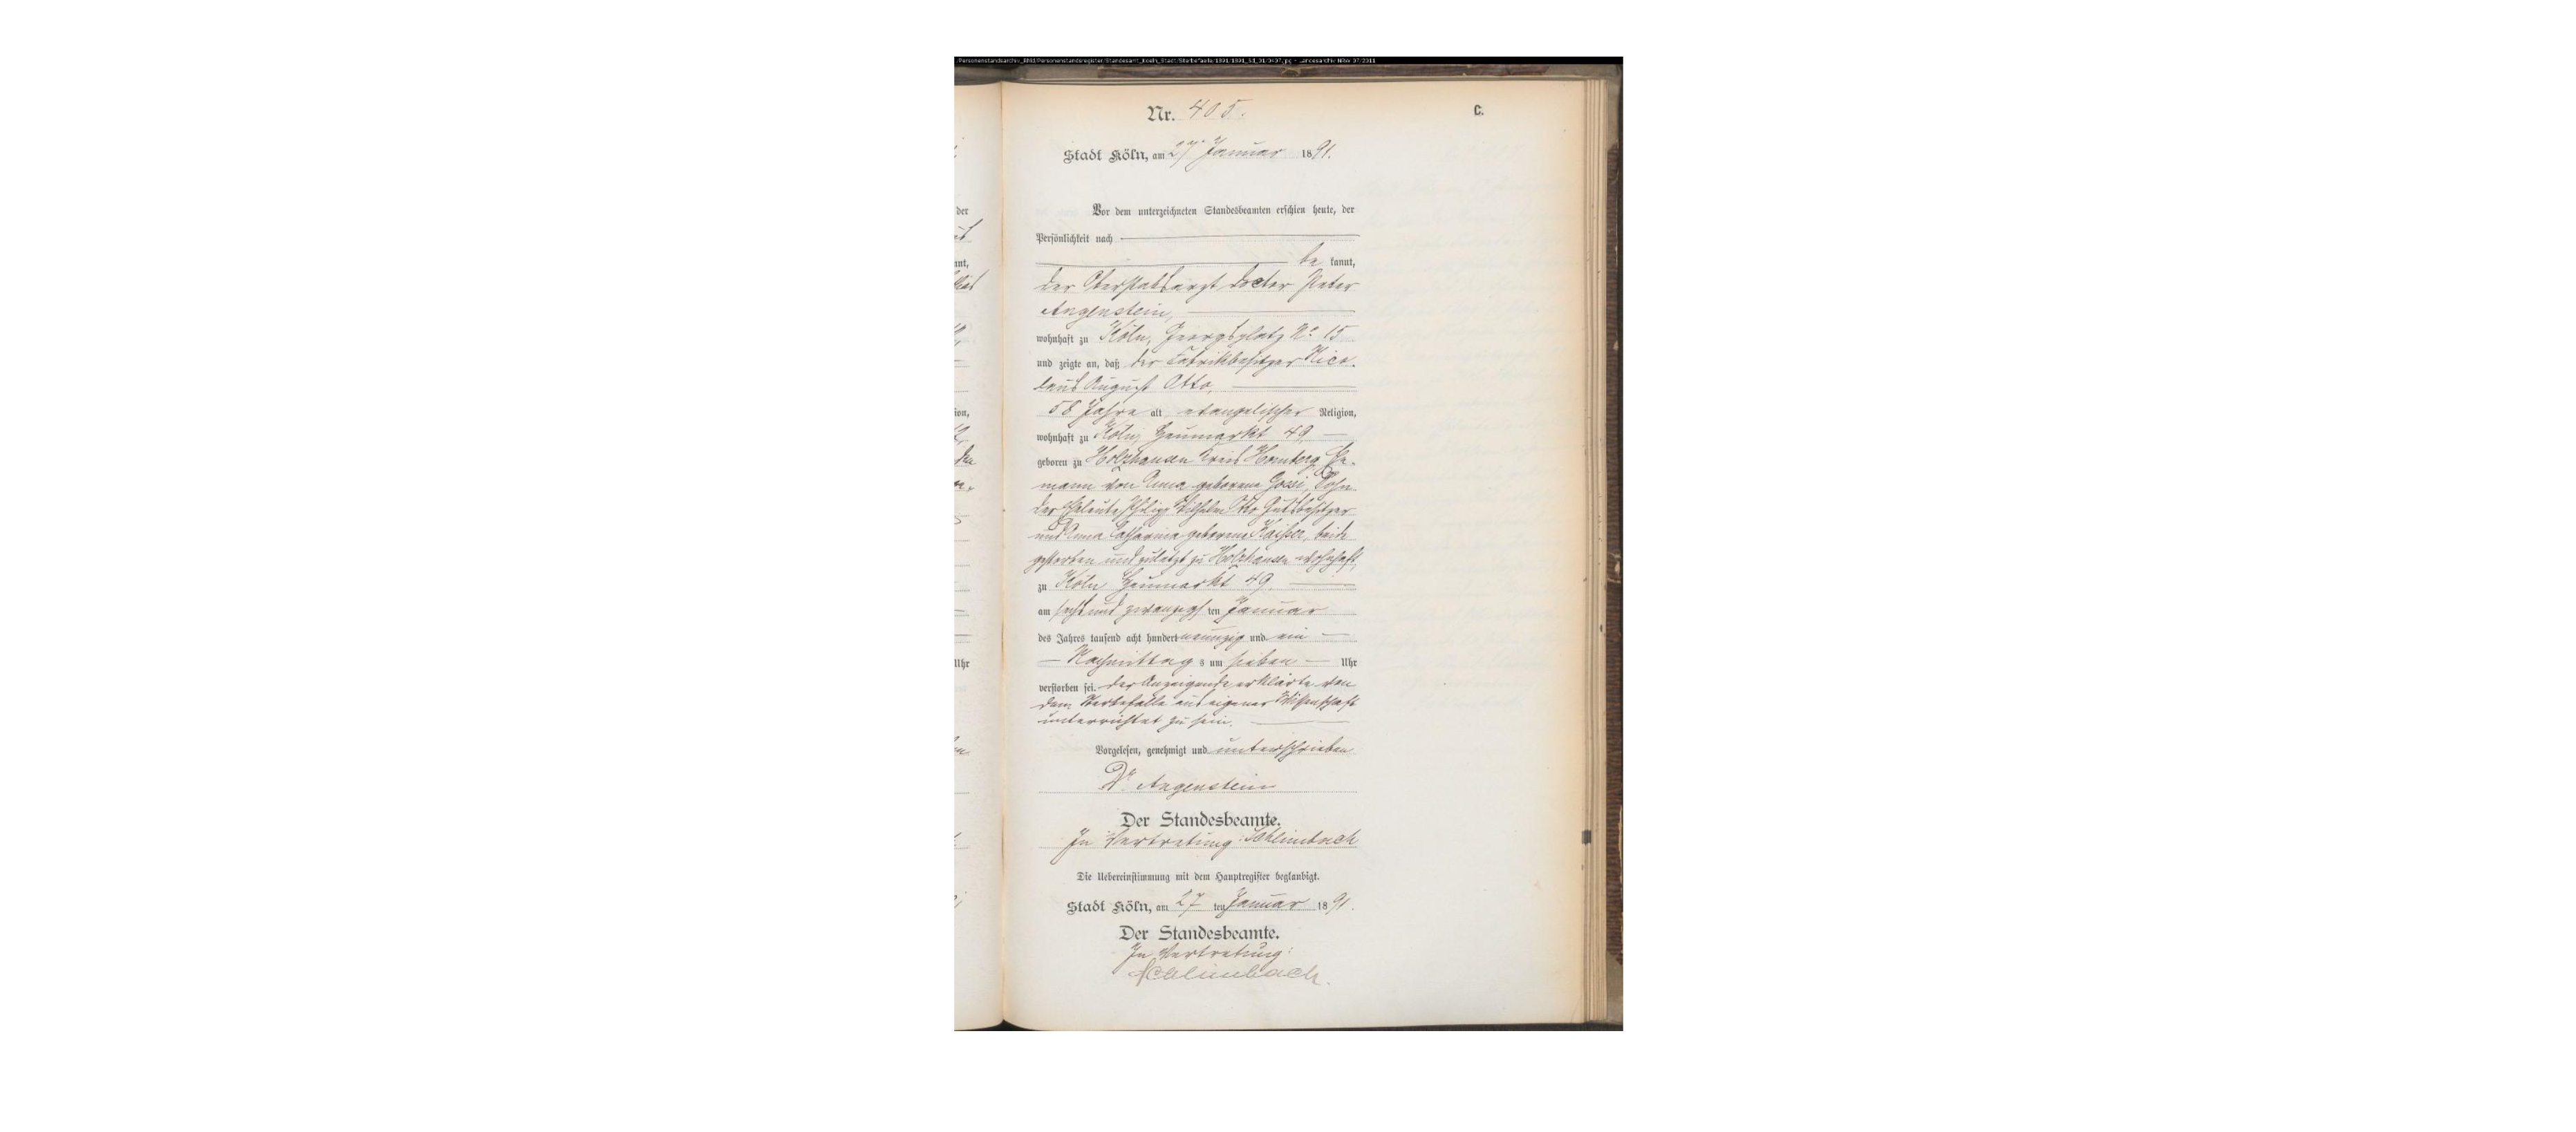 Nr. 405.
C.
Stadt Köln, am 27. Januar 1891.
Vor dem unterzeichneten Standesbeamten erschien heute, der
Persönlichkeit nach
be kannt,
der Oberstabsarzt doctor Peter
Angenstein,
wohnhaft zu Köln, Georgsplatz No 15
und zeigte an, daß der Fabrikbesitzer Nico-
laus August Otto,
58 Jahre alt evangelischer Religion,
wohnhaft zu Köln, Heumarkt 49,
geboren zu Holzhausen Kreis Homberg, Ehe-
mann von Anna geborene Gossi, Sohn
der Eheleute Philipp Wilhelm Otto Gutsbesitzer
und Anna Catharina geborene Kaiser, beide
gestorben und zuletzt zu Holzhausen wohnhaft,
zu Köln, Heumarkt 49,
am sechs und zwanzigs ten Januar
des Jahres tausend acht hundert neunzig und ein
Nachmittag s um sieben Uhr
verstorben sei. Der Anzeigende erklärte von
dem Sterbefalle aus eigener Wissenschaft
unterrichtet zu sein.
Vorgelesen, genehmigt und unterschrieben
Dr. Angenstein
Der Standesbeamte.
In Vertretung: Schlimbach
Die Uebereinstimmung mit dem Hauptregister beglaubigt.
Stadt Köln, am 27 ten Januar 1891.
Der Standesbeamte.
In Vertretung:
Schlimbach.